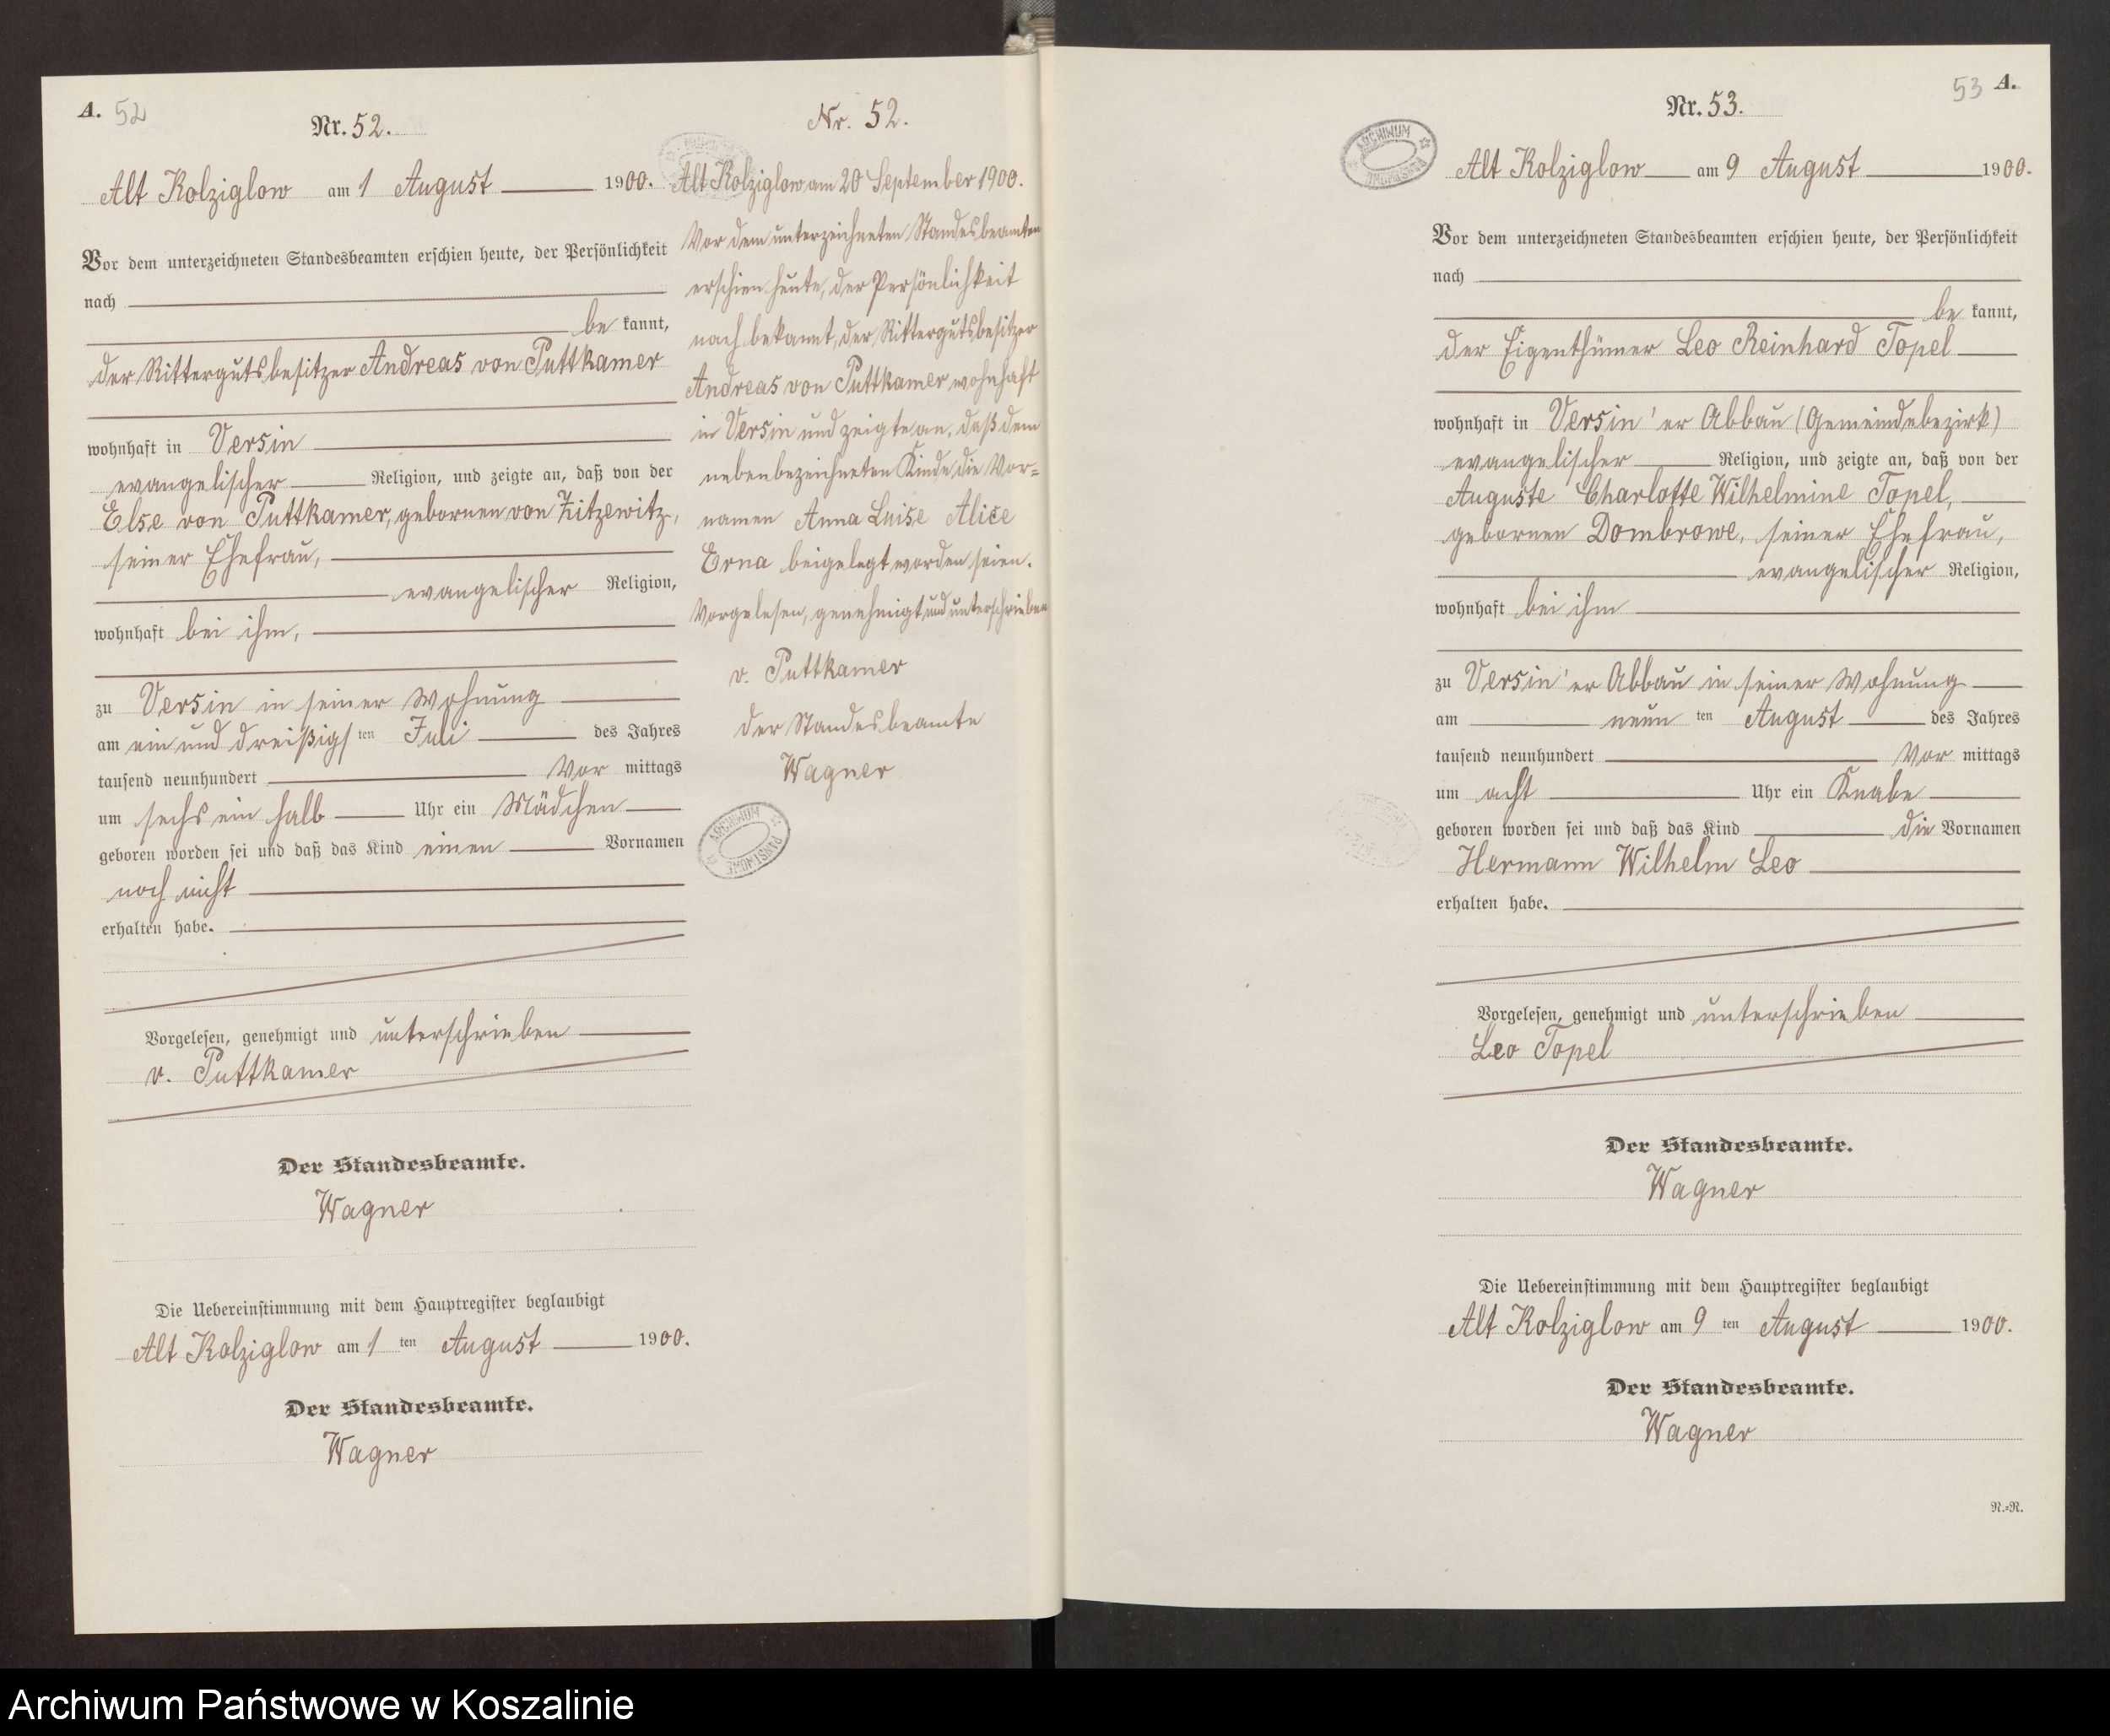 A. 52
Nr. 52.
Alt Kolziglow am 1 August 1900.
Vor dem unterzeichneten Standesbeamten erschien heute, der Persönlichkeit
nach
be kannt,
der Rittergutsbesitzer Andreas von Puttkamer
wohnhaft in Versin
evangelischer Religion, und zeigte an, daß von der
Else von Puttkamer, gebornen von Zitzewitz,
seiner Ehefrau,
evangelischer Religion,
wohnhaft bei ihm,
zu Versin in seiner Wohnung
am ein und dreißigs ten Juli des Jahres
tausend neunhundert Vor mittags
um sechs ein halb Uhr ein Mädchen
geboren worden sei und daß das Kind einen Vornamen
noch nicht
erhalten habe.
Vorgelesen, genehmigt und unterschrieben
v. Puttkamer
Der Standesbeamte.
Wagner
Die Uebereinstimmung mit dem Hauptregister beglaubigt
Alt Kolziglow am 1 ten August 1900.
Der Standesbeamte.
Wagner
Nr. 52.
Alt Kolziglow am 20 September 1900.
Vor dem unterzeichneten Standesbeamten
erschien heute, der Persönlichkeit
nach bekannt, der Rittergutsbesitzer
Andreas von Puttkamer wohnhaft
in Versin und zeigte an, daß dem
nebenbezeichneten Kinde die Vor=
namen Anna Luise Alice
Erna beigelegt worden seien.
Vorgelesen, genehmigt und unterschrieben
v. Puttkamer
Der Standesbeamte
Wagner
ARCHIWUM PAŃSTWOWE
53 A.
Nr. 53.
ARCHIWUM PAŃSTWOWE
Alt Kolziglow am 9 August 1900.
Vor dem unterzeichneten Standesbeamten erschien heute, der Persönlichkeit
nach
be kannt,
der Eigenthümer Leo Reinhard Topel
wohnhaft in Versin'er Abbau (Gemeindebezirk)
evangelischer Religion, und zeigte an, daß von der
Auguste Charlotte Wilhelmine Topel,
gebornen Dombrowe, seiner Ehefrau,
evangelischer Religion,
wohnhaft bei ihm
zu Versin'er Abbau in seiner Wohnung
am neun ten August des Jahres
tausend neunhundert Vor mittags
um acht Uhr ein Knabe
geboren worden sei und daß das Kind die Vornamen
Hermann Wilhelm Leo
erhalten habe.
Vorgelesen, genehmigt und unterschrieben
Leo Topel
Der Standesbeamte.
Wagner
Die Uebereinstimmung mit dem Hauptregister beglaubigt
Alt Kolziglow am 9 ten August 1900.
Der Standesbeamte.
Wagner
N.=N.
Archiwum Państwowe w Koszalinie